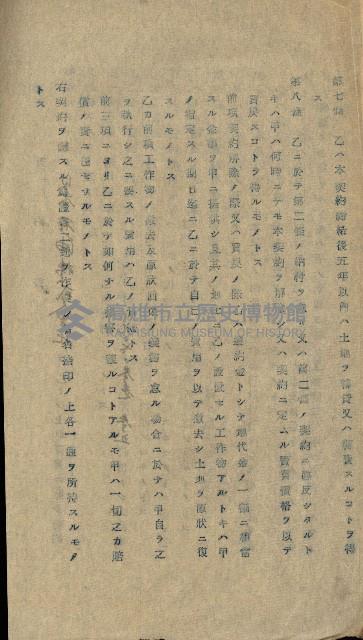 第七條 乙ハ本契約締結後五年以內ハ土地ヲ賃貸又ハ賣スルコトヲ得
ス
第八條 乙ニ於テ第二條ノ納付ヲ又ハ第二條ノ契約ニ違反シタルト
キハ甲ハ何時ニテモ本契約ヲ解又ハ契約ニ定ムル賣買價格ヲ以テ
買戻スコトヲ得ルモノトス
前項契約解除ノ際又ハ買戻ノ際ハ違約金トシテ代金ノ一割ニ相當
スル金額ヲ甲ニ提供シ且其ノ地上ニ乙ノ設置セル工作物アルトキハ甲
ノ指定スル期日迄ニ乙ニ於テ自己費用ヲ以テ撤去シ土地ヲ原狀ニ復
スルモノトス
乙カ前項工作物ノ撤去及原狀回復義務ヲ怠ル場合ニ於テハ甲自ラ之
ヲ執行シ之ニ要スル費用ハ乙ノトス
前三項ニヨリ乙ニ於テ如何ナル損害ヲ蒙ルコトアルモ甲ハ一切之カ賠
償ノ責ニ任セサルモノトス
右契約ヲ證スル爲證書二通ヲ作リ各者捺印ノ上各一通ヲ所持スルモノ
トス
高雄市立歷史博物館
KAOHSIUNG MUSEUM OF HISTORY